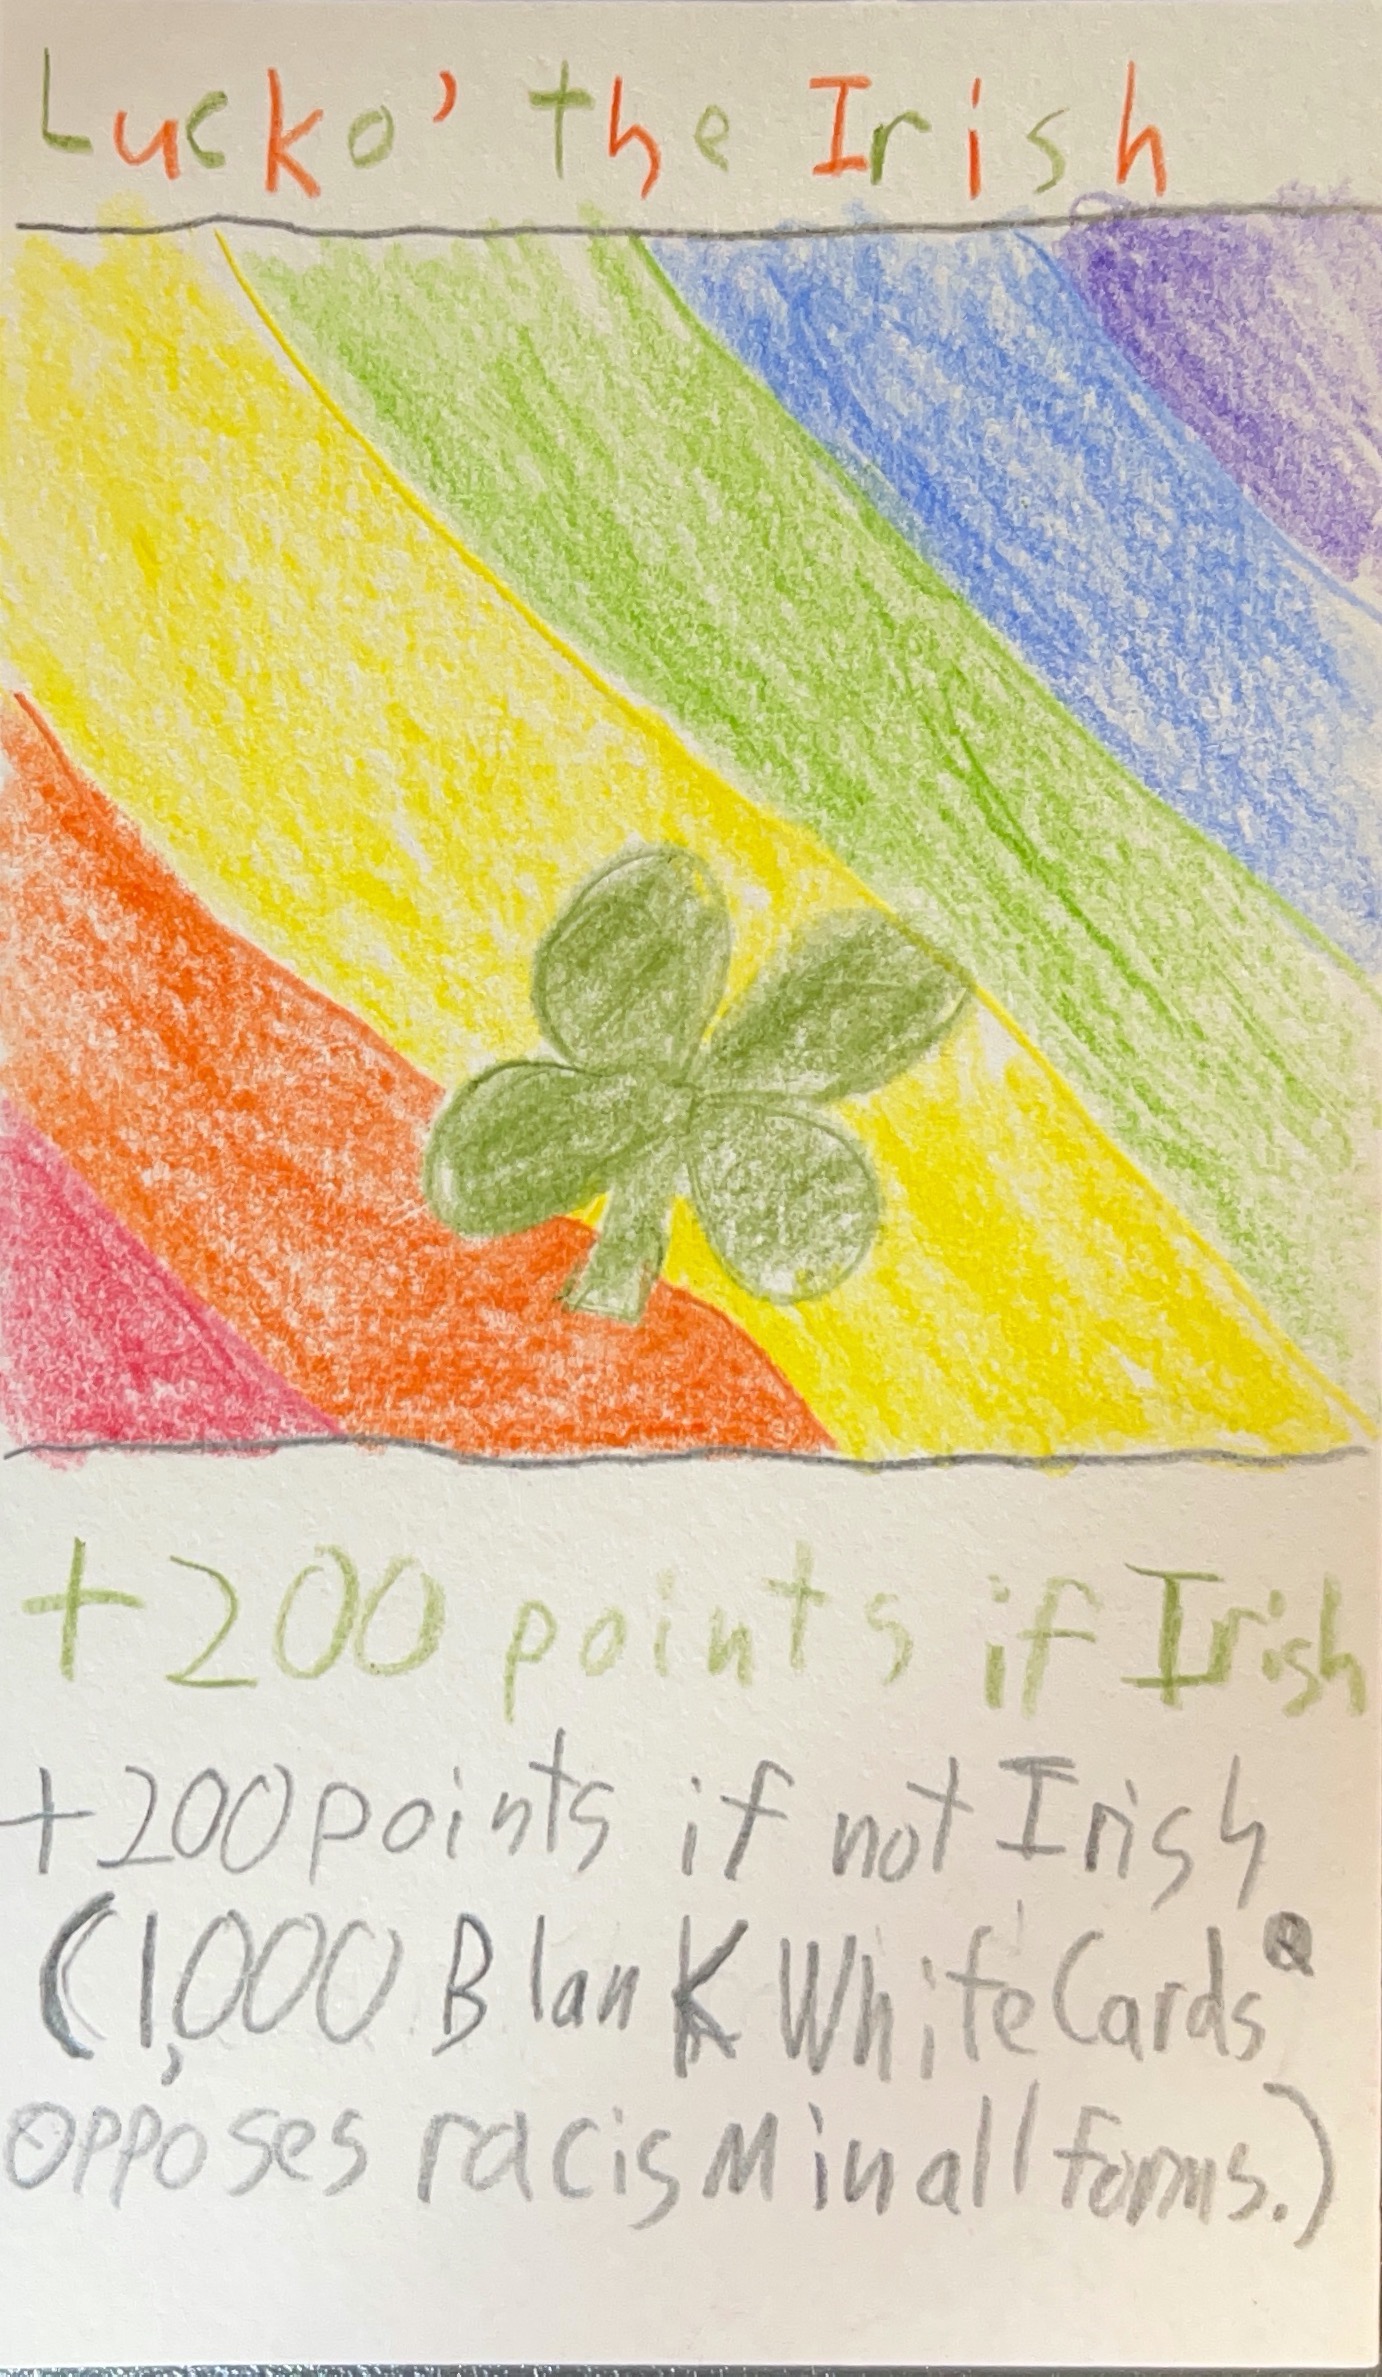 Lucko' the Irish
+200 points if Irish
+200 points if not Irish
(1,000 Blank White Cards®
opposes racism in all forms.)